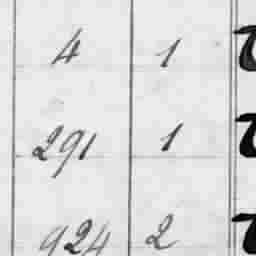 4 1
291 1
924 2